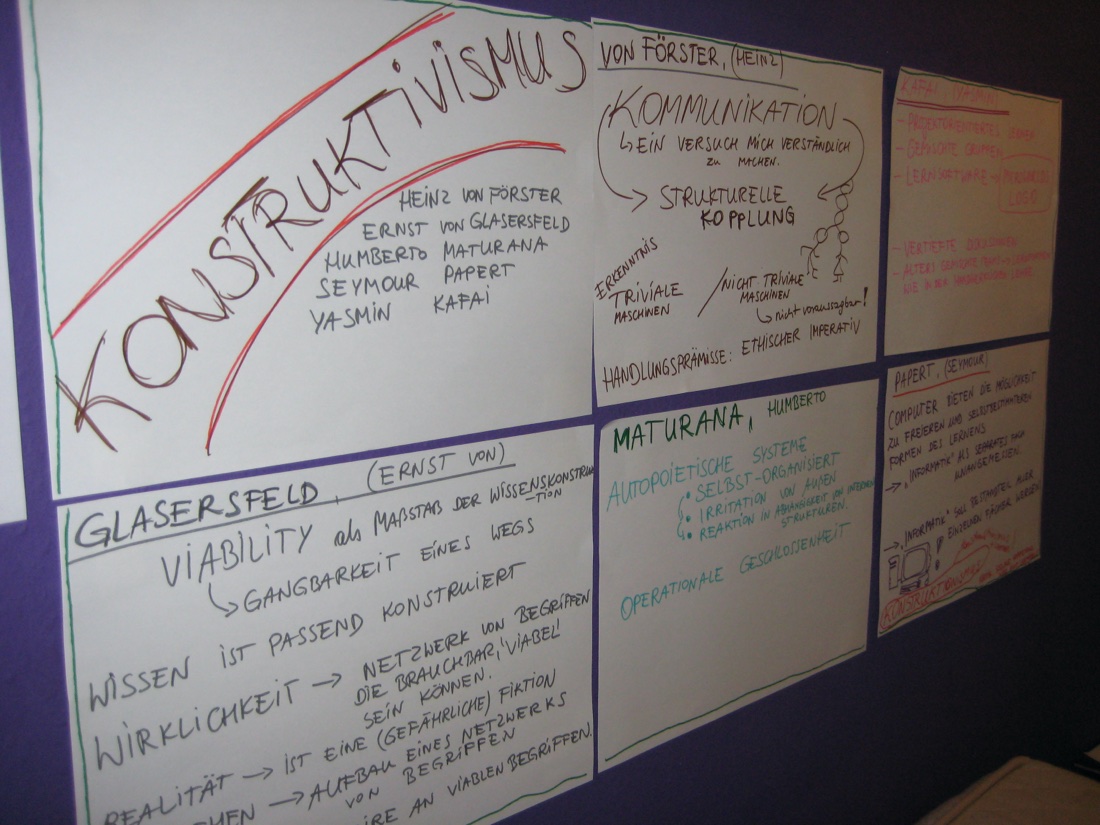 KONSTRUKTIVISMUS
HEINZ VON FÖRSTER
ERNST VON GLASERSFELD
HUMBERTO MATURANA
SEYMOUR PAPERT
YASMIN KAFAI
VON FÖRSTER, (HEINZ)
KOMMUNIKATION
↳ EIN VERSUCH MICH VERSTÄNDLICH
ZU MACHEN.
STRUKTURELLE
KOPPLUNG
ERKENNTNIS
TRIVIALE
MASCHINEN
/ NICHT TRIVIALE
MASCHINEN
↳ nicht voraussagbar!
HANDLUNGSPRÄMISSE: ETHISCHER IMPERATIV
KAFAI, (YASMIN)
- PROJEKTORIENTIERTES LERNEN
- GEMISCHTE GRUPPEN
- LERNSOFTWARE →
LOGO
- VERTIEFTE DISKUSSIONEN
GLASERSFELD, (ERNST VON)
VIABILITY als MAßSTAB DER WISSENSKONSTRUK-
TION
↳ GANGBARKEIT EINES WEGS
WISSEN IST PASSEND KONSTRUIERT
WIRKLICHKEIT → NETZWERK VON BEGRIFFEN
DIE BRAUCHBAR, 'VIABEL'
SEIN KÖNNEN.
REALITÄT → IST EINE (GEFÄHRLICHE) FIKTION
→ AUFBAU EINES NETZWERKS
VON BEGRIFFEN
AN VIABLEN BEGRIFFEN.
MATURANA, HUMBERTO
AUTOPOIETISCHE SYSTEME
• SELBST-ORGANISIERT
• IRRITATION VON AUßEN
• REAKTION IN ABHÄNGIGKEIT VON INTERNEN
STRUKTUREN.
OPERATIONALE GESCHLOSSENHEIT
PAPERT, (SEYMOUR)
COMPUTER BIETEN DIE MÖGLICHKEIT
ZU FREIEREN UND SELBSTBESTIMMTEREN
FORMEN DES LERNENS
→ „INFORMATIK" ALS SEPARATES FACH
UNANGEMESSEN.
→ „INFORMATIK" SOLL BESTANDTEIL ALLER
EINZELNEN FÄCHER WERDEN
KONSTRUKTIONISMUS